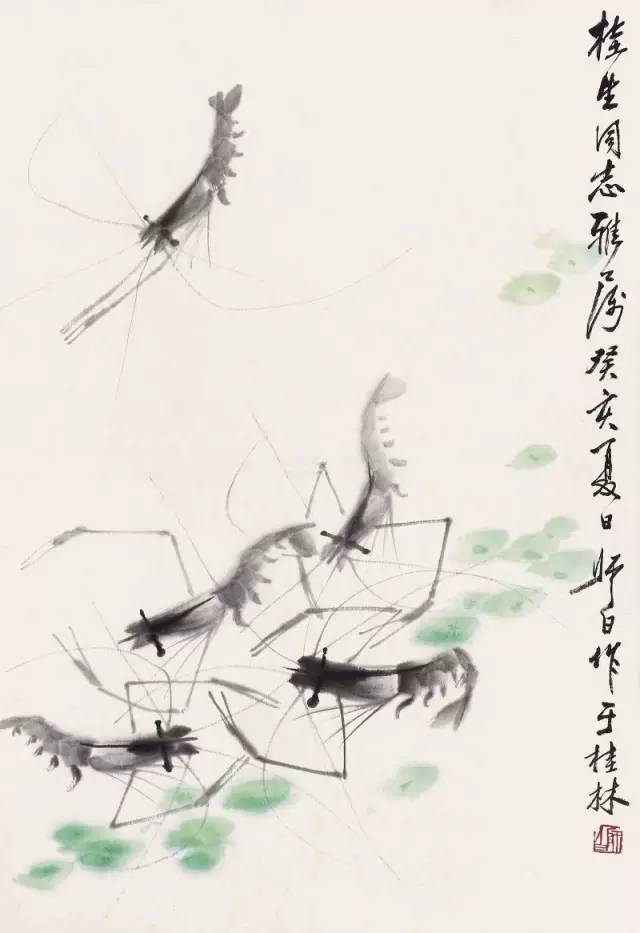 桂生同志雅属癸亥夏日师白作于桂林